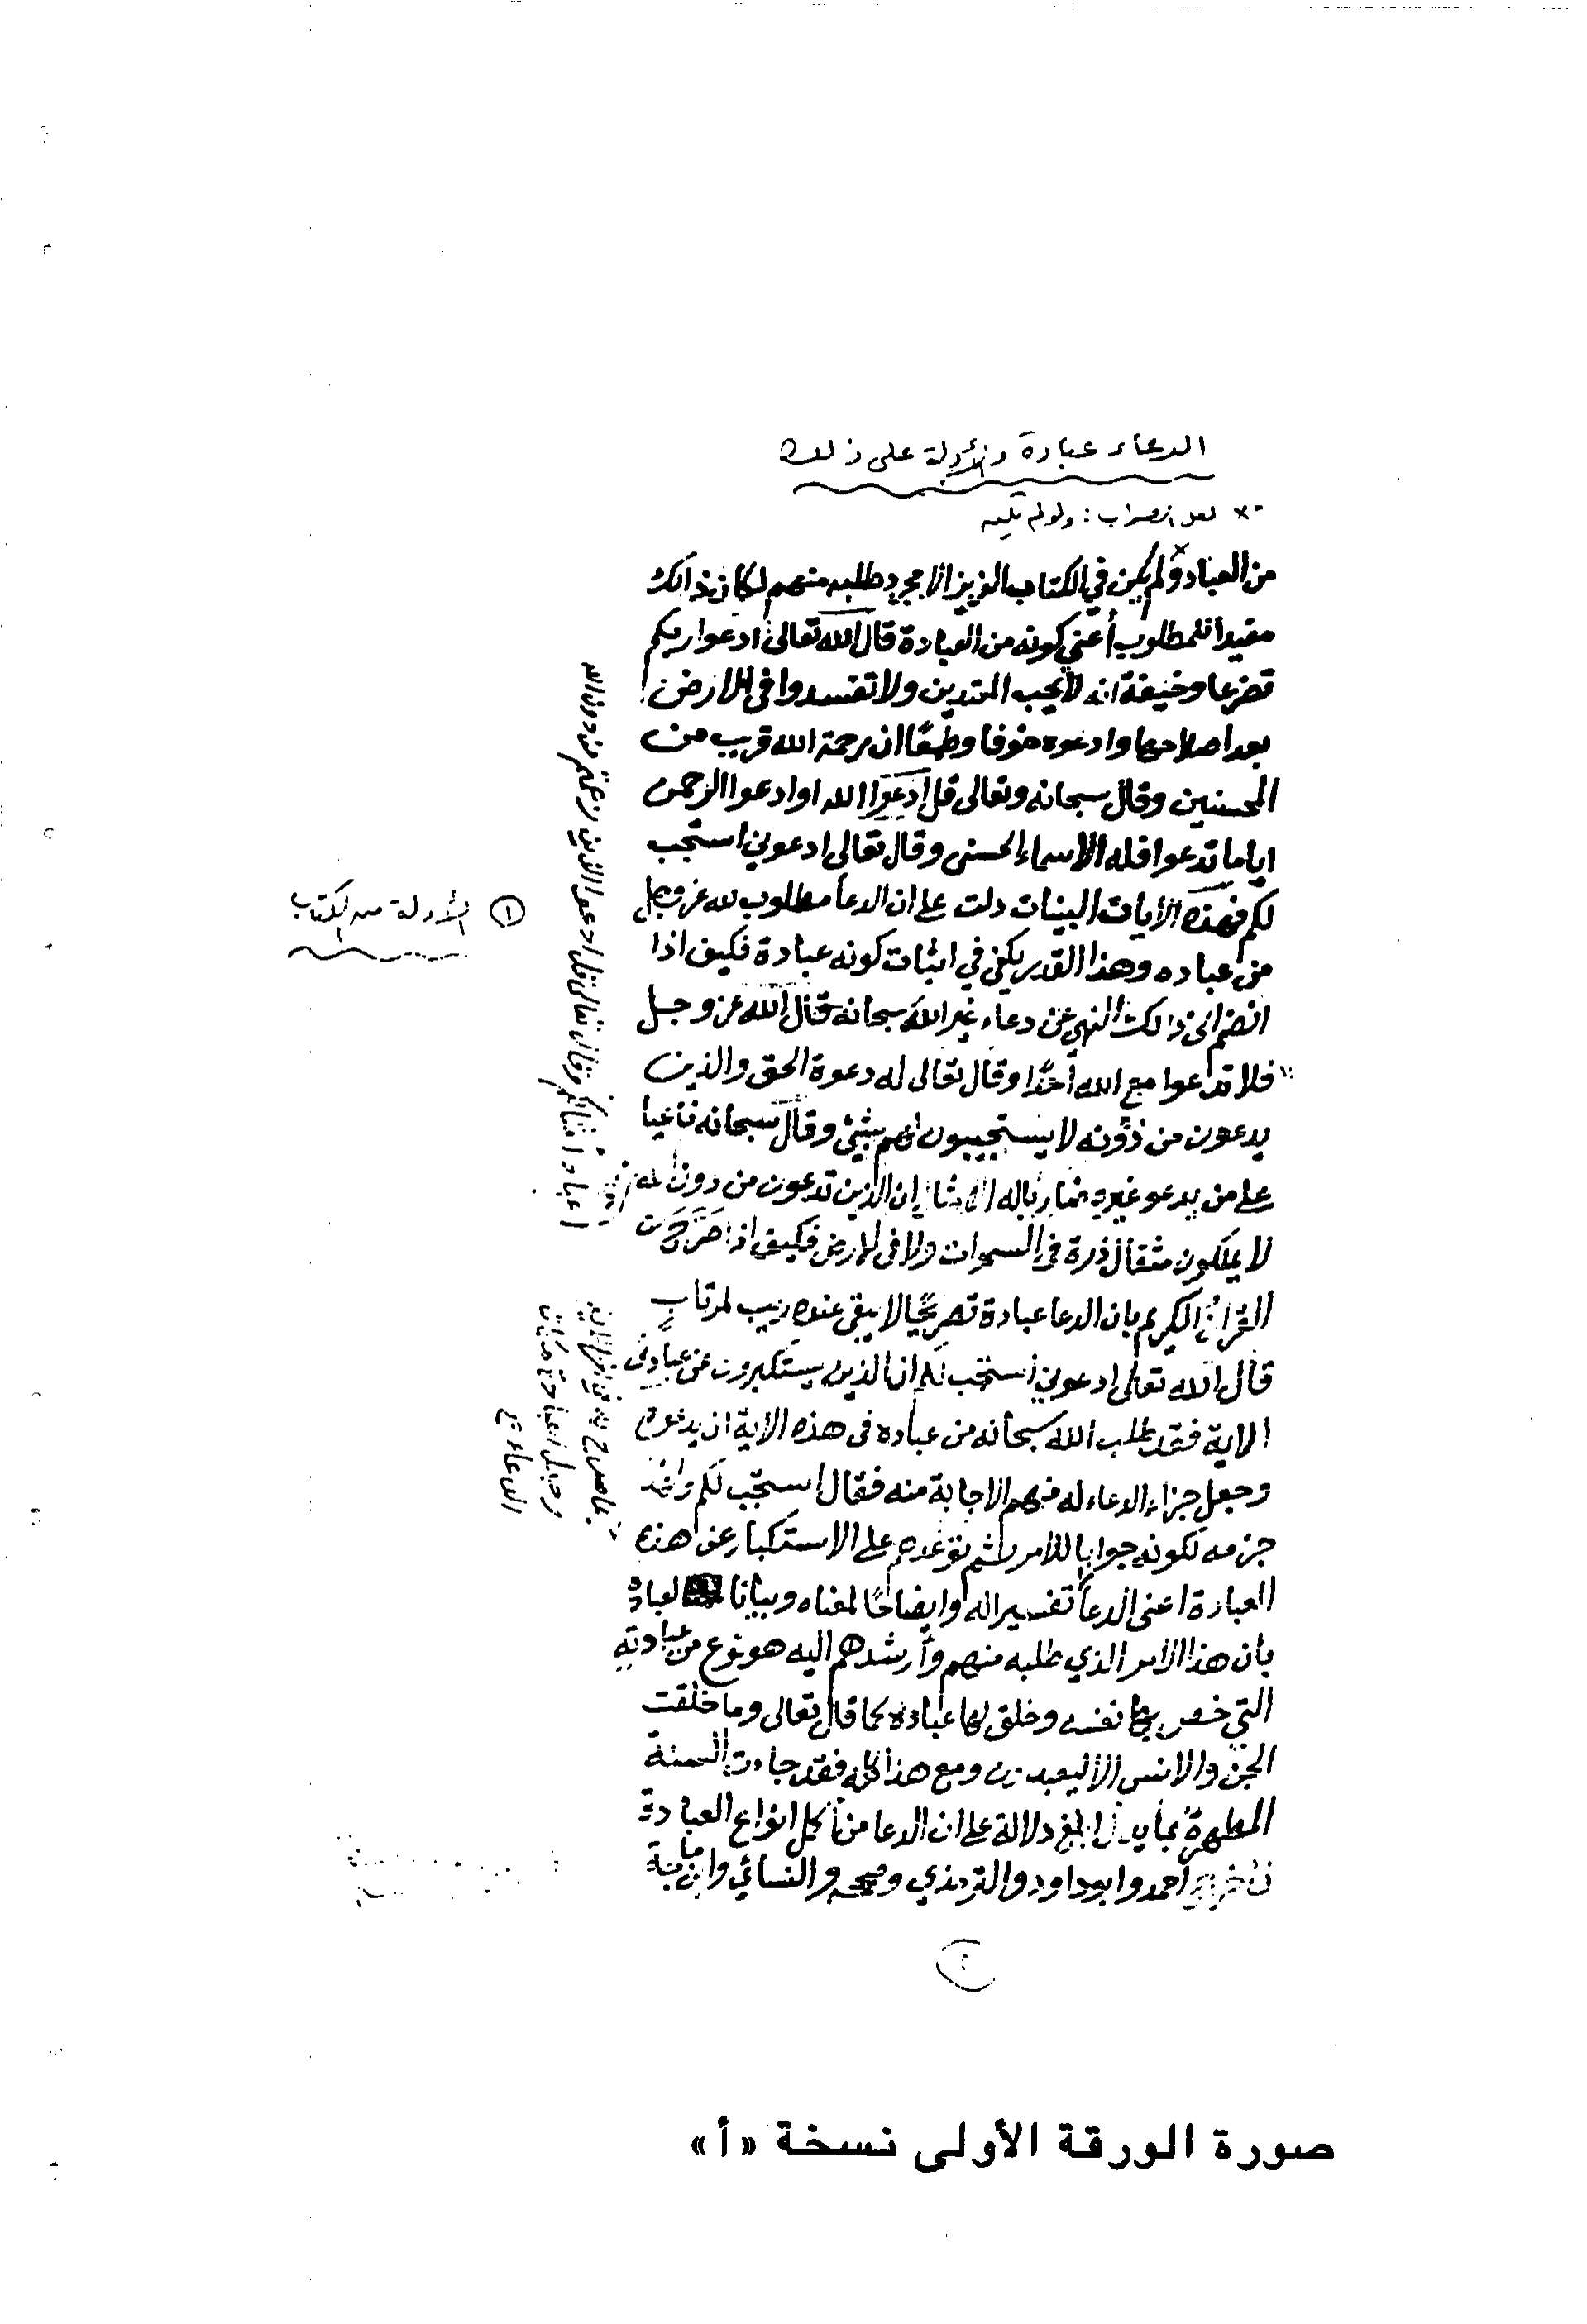 الدعاء عبادة والأدلة على ذلك
* لعل الصواب: ولو لم يكن
من العباد ولم يكن في الكتاب العزيز الا مجرد طلبه منهم لكان ذالك
مفيدا للمطلوب أعني كونه من العبادة قال الله تعالى ادعوا ربكم
تضرعا وخيفة انه لا يحب المعتدين ولا تفسدوا في الارض
بعد اصلاحها وادعوه خوفا وطمعًا ان رحمة الله قريب من
المحسنين وقال سبحانه وتعالى قل ادعوا الله او ادعوا الرحمن
اياما تدعوا فله الاسماء الحسنى وقال تعالى ادعوني استجب
لكم فهذه الايات البينات دلت على ان الدعا مطلوب لله عز وجل
من عباده وهذا القدر يكفي في اثبات كونه عبادة فكيف اذا
انضم الى ذالك النهي عن دعاء غير الله سبحانه قال الله عز وجل
فلا تدعوا مع الله أحدًا وقال تعالى له دعوة الحق والذين
يدعون من دونه لا يستجيبون لهم بشيئ وقال سبحانه ناعيا
على من يدعو غيره ضاربا له الامثال إن الذين تدعون من دون الله
لا يملكون مثقال ذرة في السموات ولا في الارض فكيف اذا صرحت
القرآن الكريم بان الدعا عبادة تصريحًا لا يبقى عنده ريب لمرتاب
قال الله تعالى ادعوني أستجب لكم ان الذين يستكبرون عن عبادتي
الاية فقد طلب الله سبحانه من عباده في هذه الاية ان يدعوه
وجعل جزاء الدعاء له منهم الاجابة منه فقال استجب لكم
جزمه لكونه جوابا للامر ثم توعدهم على الاستكبار عن هذه
العبادة اعني الدعأ تفسيرا له وايضاحًا لمعناه وبيانا لعباده
بان هذا الامر الذي طلبه منهم وأرشدهم اليه هو نوع من عبادته
التي خص بها نفسه وخلق لها عباده كما قال تعالى وما خلقت
الجن والانس الا ليعبدون ومع هذا كله فقد جاءت السنة
المطهرة بما يدل ابلغ دلالة على ان الدعا من أكمل انواع العبادة
فأخرج أحمد وابو داود والترمذي وصححه والنسائي وابن ماجة
① الأدلة من الكتاب
وقال تعالى قل ادعوا الذين زعمتم من دون الله
عباد أمثالكم
الدعاء
صورة الورقة الأولى نسخة «أ»